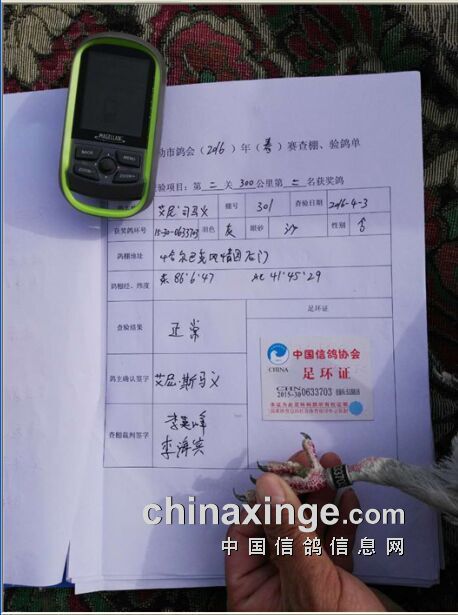 MAGELLAN
BACK
MENU
动市鸽会（2016）年（春）赛查棚、验鸽单
验项目：第 二 关 300 公里第 二 名获奖鸽
艾尼·司马义 棚号 301 查验日期 2016-4-3
获奖鸽环号 15-30-0633703 羽色 灰 眼砂 沙 性别
鸽棚地址
鸽棚经、纬度 东 86°6'47 北 41°45'29
查验结果 正常
足环证
鸽主确认签字 艾尼·斯马义
查棚裁判签字
李海宾
中国信鸽协会
CHINA
足环证
CHN
2015-30 0633703
chinaxinge.com
中国信鸽信息网